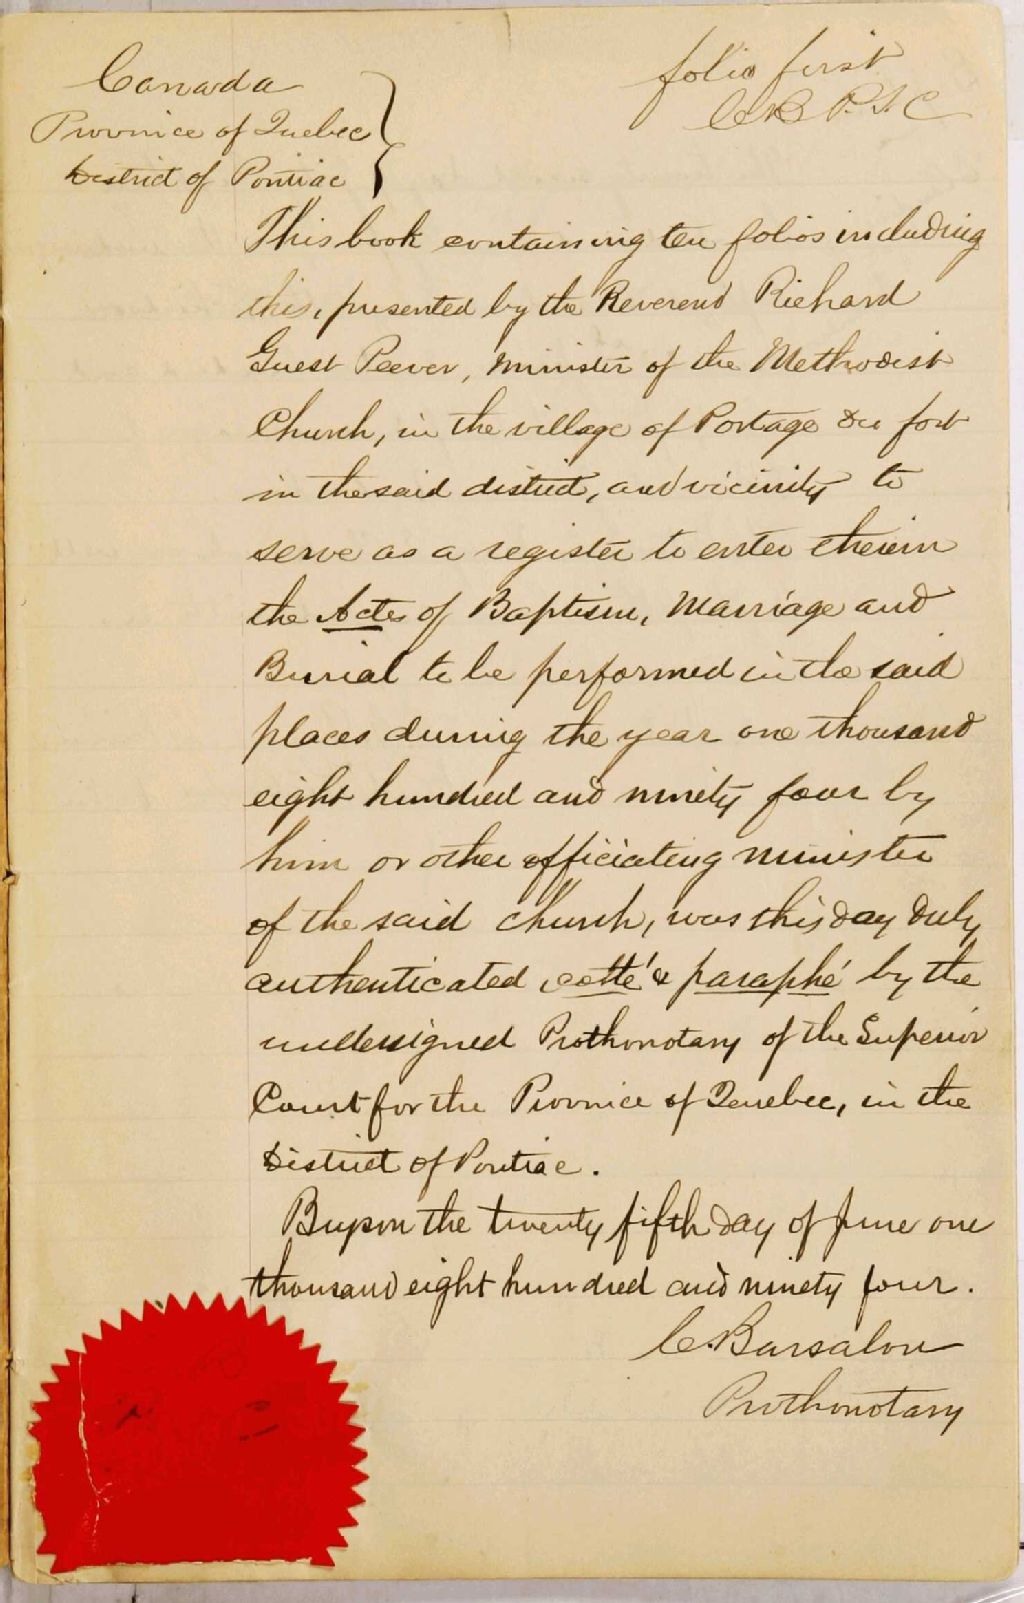 Canada
Province of Quebec
District of Pontiac
folio first
CB P.S.C
This book containing ten folios including
this, presented by the Reverend Richard
Guest Peever, minister of the Methodist
Church, in the village of Portage du fort
in the said district, and vicinity to
serve as a register to enter therein
the Actes of Baptism, Marriage and
Burial to be performed in the said
places during the year one thousand
eight hundred and ninety four by
him or other officiating minister
of the said church, was this day duly
authenticated, cotté & paraphé by the
undersigned Prothonotary of the Superior
Court for the Province of Quebec, in the
District of Pontiac.
Bryson the twenty fifth day of June one
thousand eight hundred and ninety four.
C. Barsalou
Prothonotary